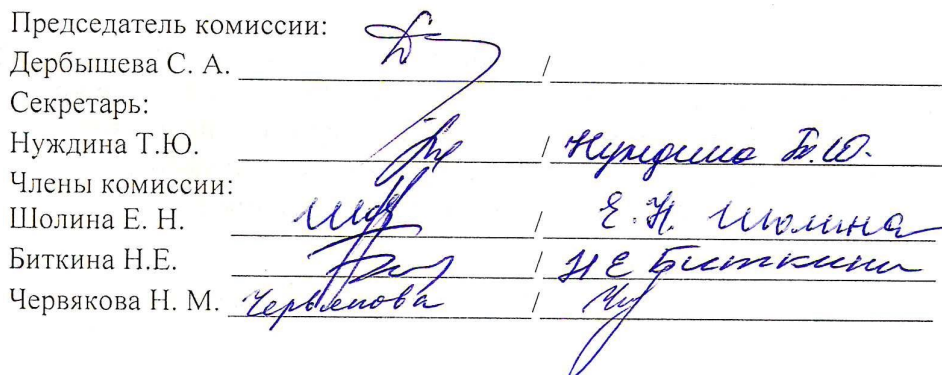 Председатель комиссии:
Дербышева С. А. /
Секретарь:
Нуждина Т.Ю. / Нуждина Т.Ю.
Члены комиссии:
Шолина Е. Н. / Е.Н. Шолина
Биткина Н.Е. / Н Е Биткина
Червякова Н. М. Червякова /